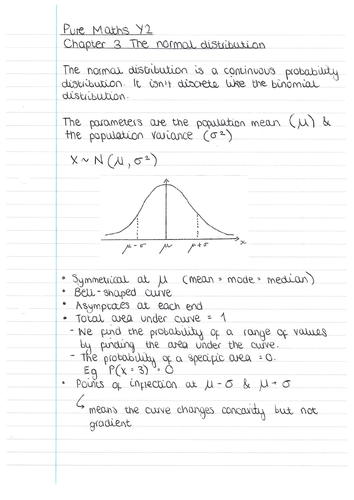 Pure Maths Y2
Chapter 3 The normal distribution
The normal distribution is a continuous probability
distribution. It isn't discrete like the binomial
distribution.
The parameters are the population mean (μ) &
the population variance (σ²)
X ~ N(μ, σ²)
μ-σ μ μ+σ x
• Symmetrical at μ (mean = mode = median)
• Bell-shaped curve
• Asymptotes at each end
• Total area under curve = 1
- We find the probability of a range of values
by finding the area under the curve.
- The probability of a specific area = 0.
Eg P(X = 3) = 0
• Points of inflection at μ-σ & μ+σ
↳ means the curve changes concavity but not
gradient